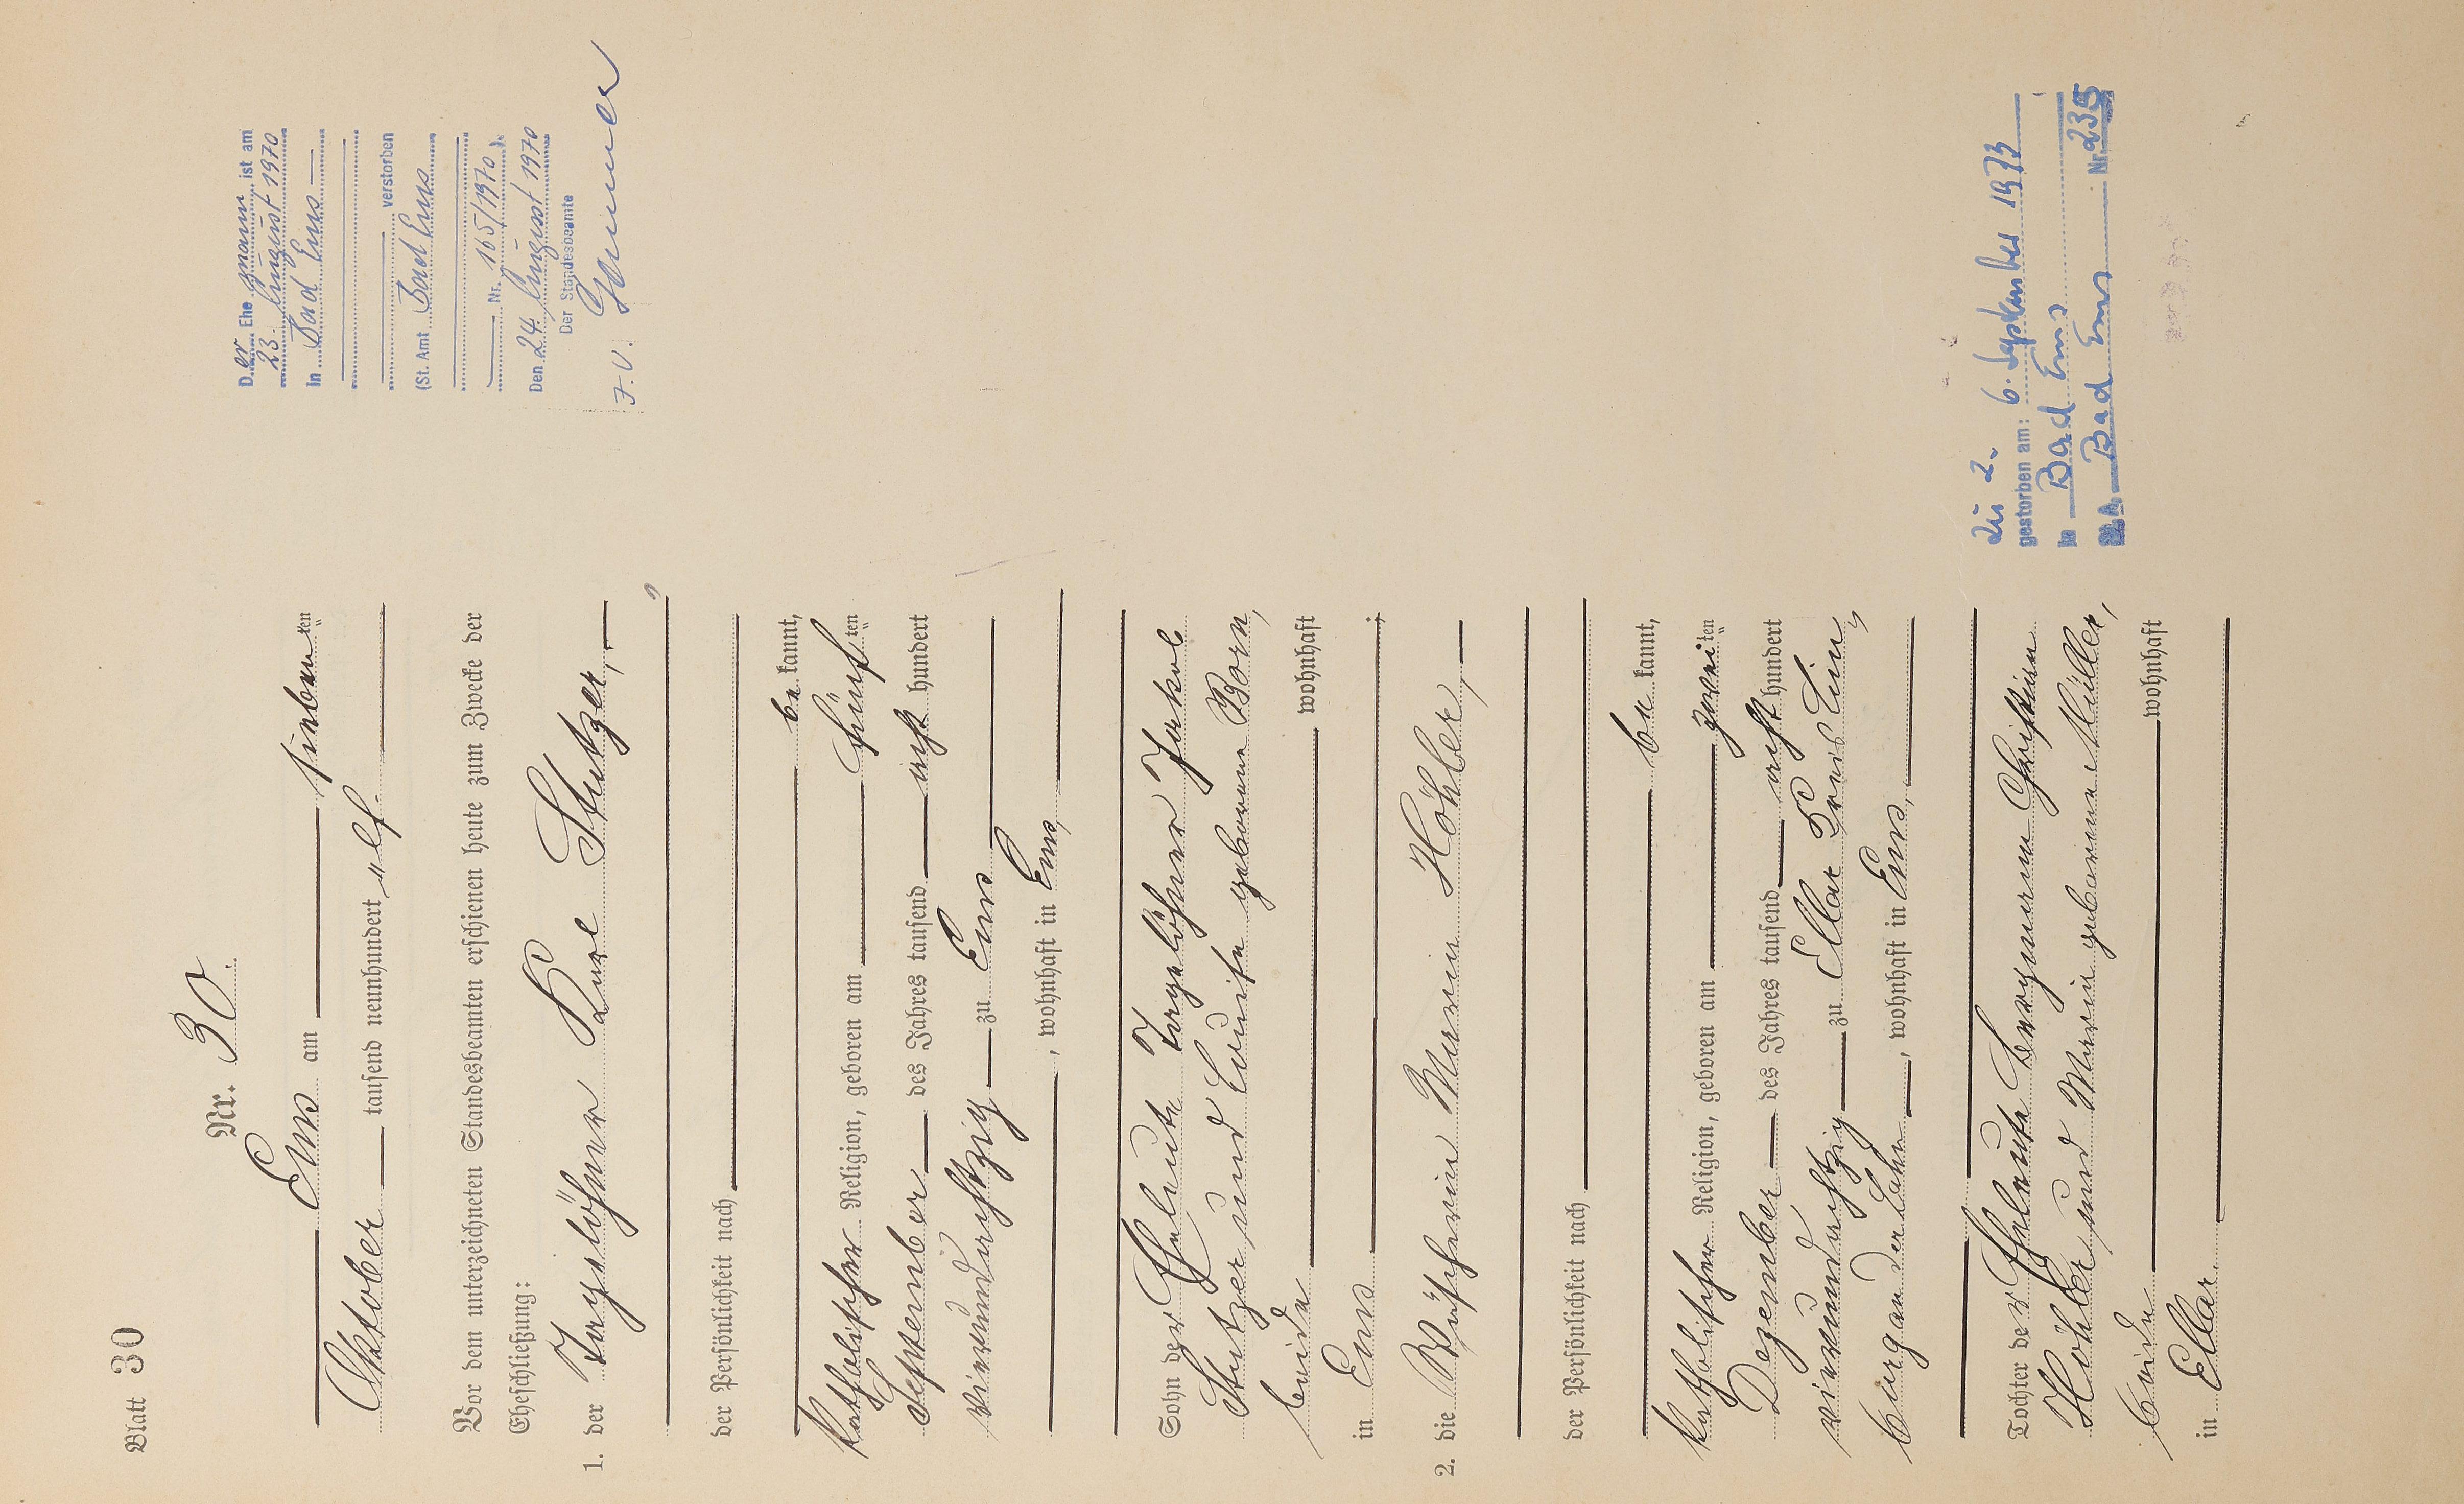 Blatt 30
Nr. 30.
Ems am sieben ten
Oktober tausend neunhundert elf.
Vor dem unterzeichneten Standesbeamten erschienen heute zum Zwecke der
Eheschließung:
1. der Tagelöhner Karl Stutzer,
der Persönlichkeit nach
be kannt,
katholischer Religion, geboren am fünf ten
September des Jahres tausend acht hundert
vierundachtzig zu Ems
, wohnhaft in Ems,
Sohn der Eheleute Tagelöhner Jakob
Stutzer und Luise geborene Born,
beide wohnhaft
in Ems ;
2. die Wäscherin Maria Höhler,
der Persönlichkeit nach
be kannt,
katholischer Religion, geboren am zwei ten
Dezember des Jahres tausend acht hundert
vierundachtzig zu Ellar Kreis Lim,
burg an der Lahn, wohnhaft in Ems,
Tochter der Eheleute Bergmann Christian
Höhler und Maria geborene Müller,
beide wohnhaft
in Ellar.
D er Ehe mann ist am
23. August 1970
in Bad Ems
verstorben
(St. Amt Bad Ems
Nr. 165/1970 ).
Den 24. August 1970
Der Standesbeamte
J. V.
Zu 2.
gestorben am: 6. September 1973
in Bad Ems
Bad Ems Nr. 235